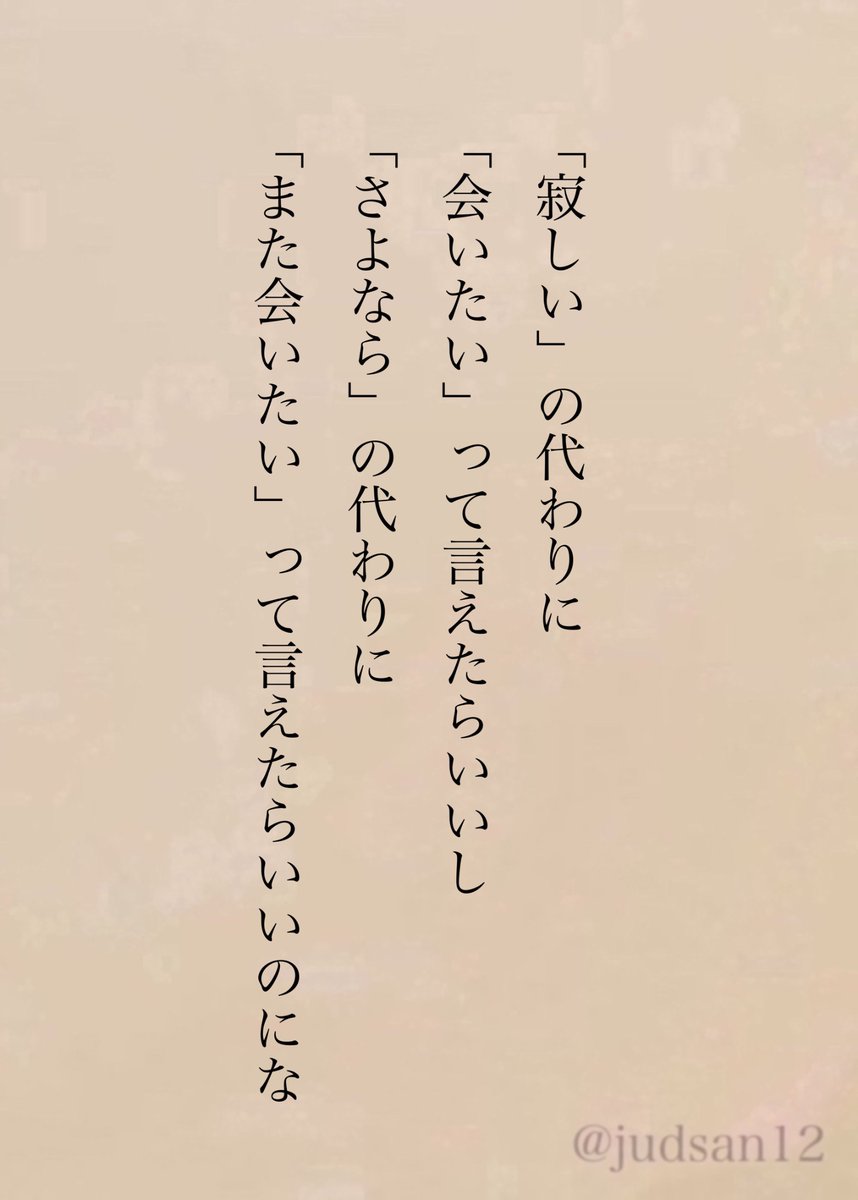 「寂しい」の代わりに
「会いたい」って言えたらいいし
「さよなら」の代わりに
「また会いたい」って言えたらいいのにな
@judsan12